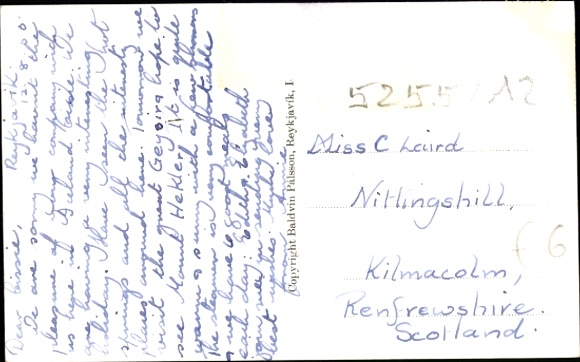 Reykjavik.
12.8.50.
Dear Cissie,
We are sorry we haven't the
pleasure of your company with
us here in Iceland Cissie. We
are having a very interesting
holiday. Have seen the hot
springs and all the interesting
places around here. Tomorrow we
visit the great Geysirs hope to
see Mount Hekler. It is quite
warm & sunny with a few showers
The steamer is very comfortable
& we have a good meal
each day. Edith, Elizabeth
best wishes. love
Copyright Baldvin Pálsson, Reykjavik, I
5255/A2
Miss C Laird
Nittingshill,
£6
Kilmacolm,
Renfrewshire.
Scotland.